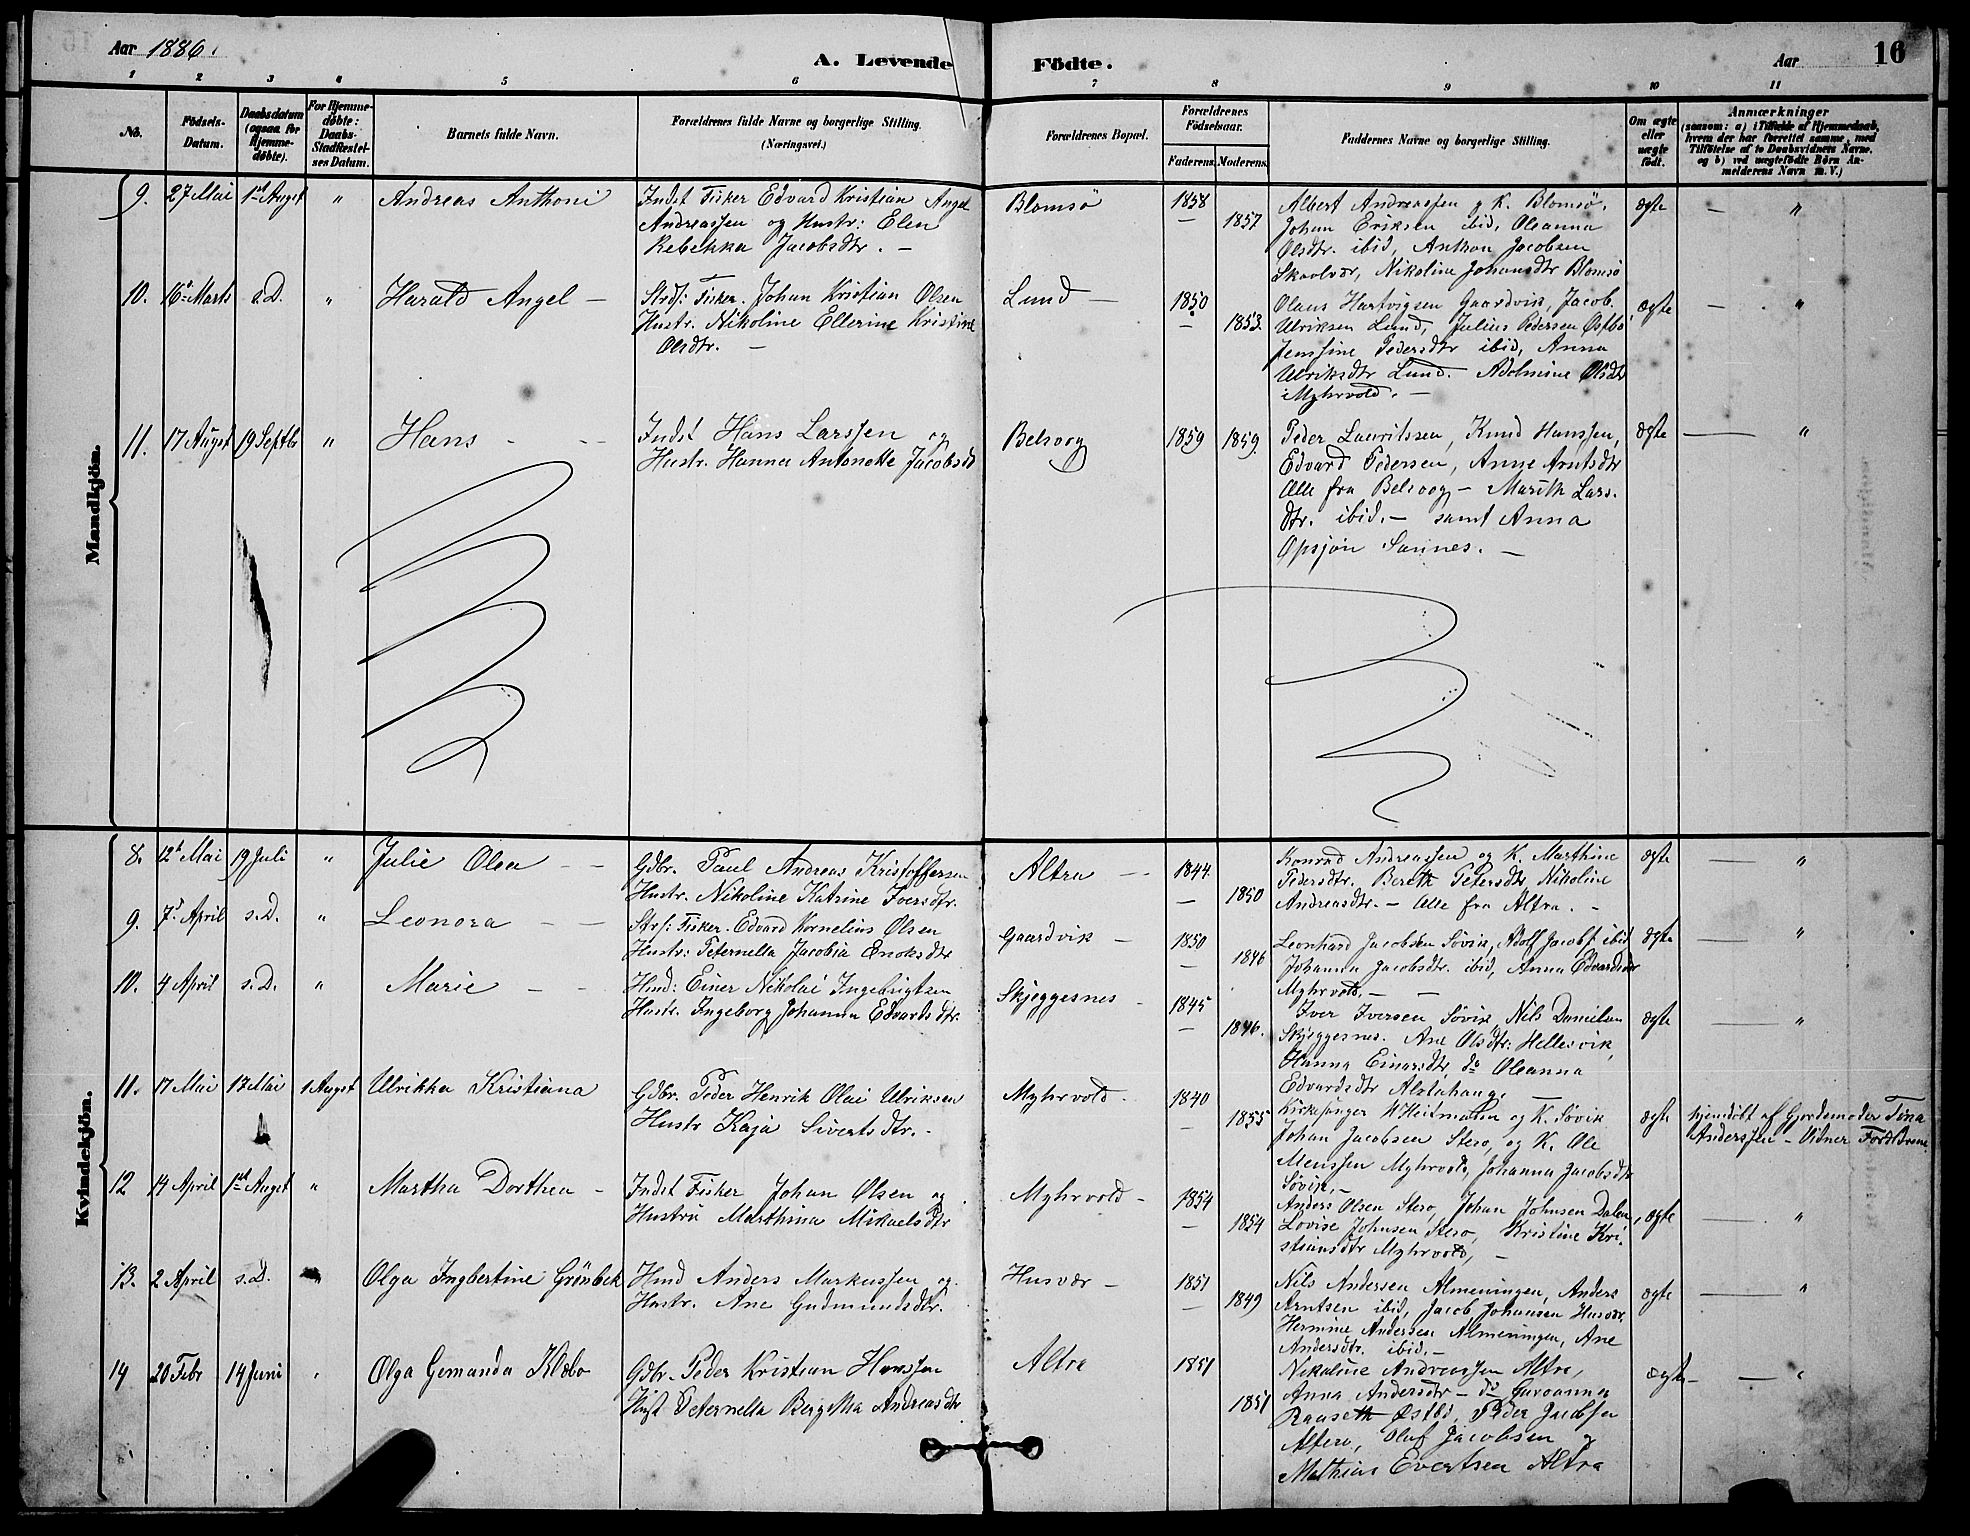 Aar 1886.
A. Levende Födte.
Aar
16
1 2 3 4 5 6 7 8 9 10 11
No.
Födsels-Datum.
Daabsdatum (ogsaa for Hjemme-döbte).
For Hjemme-döbte: Daabs-Stadfæstel-ses Datum.
Barnets fulde Navn.
Forældrenes fulde Navne og borgerlige Stilling. (Næringsvei.)
Forældrenes Bopæl.
Forældrenes Födselsaar.
Faderens. Moderens.
Faddernes Navne og borgerlige Stilling.
Om ægte eller uægte födt.
Anmærkninger
(saasom: a) i Tilfælde af Hjemmedaab, hvem der har forrettet samme, med Tilföielse af to Daabsvidners Navne, og b) ved uægtefödte Börn An-melderens Navn m.V.)
Mandkjön.
9. 27 Mai 1ste Augst " Andreas Anthoni
Indst Fisker Edvard Kristian Angel
Andreassen og Hustr: Elen
Rebekka Jacobsdtr. —
Blomsö 1858 — 1857
Albert Andreassen g K. Blomsö.
Johan Eriksen ibid, Oleanna
Olsdtr. ibid, Anthon Jacobsen
Skaalvær, Nikoline Johansdtr Blomsö
ægte — "
10. 16de Marts s.D. " Harald Angel —
Strdf: Fisker. Johan Kristian Olsen
Hustr. Nikoline Ellerine Kristine
Olsdtr. —
Lund — 1850 — 1853.
Olaus Hartvigsen Gaardvik, Jacob
Ulriksen Lund, Julius Pedersen Østbö
Jenssine Pedersdtr ibid, Anna
Ulriksdtr Lund. Adolmine Olsdtr
Myhrvold. —
ægte — "
11. 17 Augst 19 Septbr " Hans - --
Indst Hans Larssen og
Hustr. Hanna Antonette Jacobsdt
Belsvog 1859 1859.
Peder Lauritssen, Knud Hanssen,
Edvard Pedersen, Anne Arntsdtr
Alle fra Belsvog — Marith Lars-
dtr. ibid. — samt Anna
Opsjön Sannes. —
ægte — "
Kvindekjön.
8. 12te Mai 19 Juli " Julie Olea — —
Gdbr. Paul Andreas Kristoffersen
Hustr. Nikoline Katrine Iversdtr.
Altra — 1844 — 1850
Konrad Andreassen og K. Marthine
Pedersdtr. Bereth Petersdtr Nikoline
Andreasdtr. — Alle fra Altra. —
ægte — "
9. 7de April s.D. " Leonora — —
Strf: Fisker. Edvard Kornelius Olsen
Hustr: Peternella Jacobia Enoksdtr
Gaardvik — 1850 — 1846
Leonhard Jacobsen Søvik, Adolf Jacobs. ibid
Johanna Jacobsdtr. ibid, Anna Edvardsdtr
Myhrvold. — —
ægte — "
10. 4 April s.D. " Marie — —
Hmd: Einer Nikolai Ingebrigtsen
Hustr. Ingeborg Johanna Edvardsdtr.
Skjeggesnes — 1845 — 1846.
Iver Iversen Søvik, Nils Danielsen
Skjeggesnes. Ane Olsdtr: Hellesvik,
Hanna Einarsdtr do Oleanna
Edvardsdtr Alstahaug. —
ægte — "
11. 17 Mai 17 Mai 1 Augst Ulrikka Kristiana
Gdbr. Peder Henrik Olai Ulriksen
Hustr Kaja Sivertsdtr. —
Myhrvold. 1840 — 1855
Kirkesanger Heitmann og K. Søvik
Johan Jacobsen Stero, og K. Ole
Menssen Myhrvold, Johanna Jacobsdtr
Søvik. —
ægte hjemdöbt af Gjordemoder Tina
Anderssen — Vidner Forældrene
12 14 April 1ste Augst " Martha Dorthea —
Indst Fisker Johan Olsen og
Hustru Marthina Mikaelsdtr
Myhrvold — 1854 — 1854
Anders Olsen Stero, Johan Johnsen Dalen,
Lovise Johnsen Stero, Kristine Kri-
stiansdtr Myhrvold, —
ægte — "
13. 2 April s.D. " Olga Ingbertine Grönbek
Hmd Anders Markussen og
Hustr. Ane Gudmundsdtr.
Husvær — 1851 — 1849
Nils Andersen Almeningen, Anders
Arntsen ibid, Jacob Johansen Husvær,
Hermine Andersen Almeningen, Ane
Andersdtr. ibid. —
ægte — "
14 20 Febr 14 Juni " Olga Gemanda Klæbo
Gdbr. Peder Kristian Hanssen
Hust Peternella Bergetha Andreasdtr
Altra 1851 1851
Nikoline Andreassen Altra,
Anna Andersdtr — do
Østbö, Peder Jacobsen
Altero, Oluf Jacobsen og
Mathias Evertsen Altra
ægte — — "